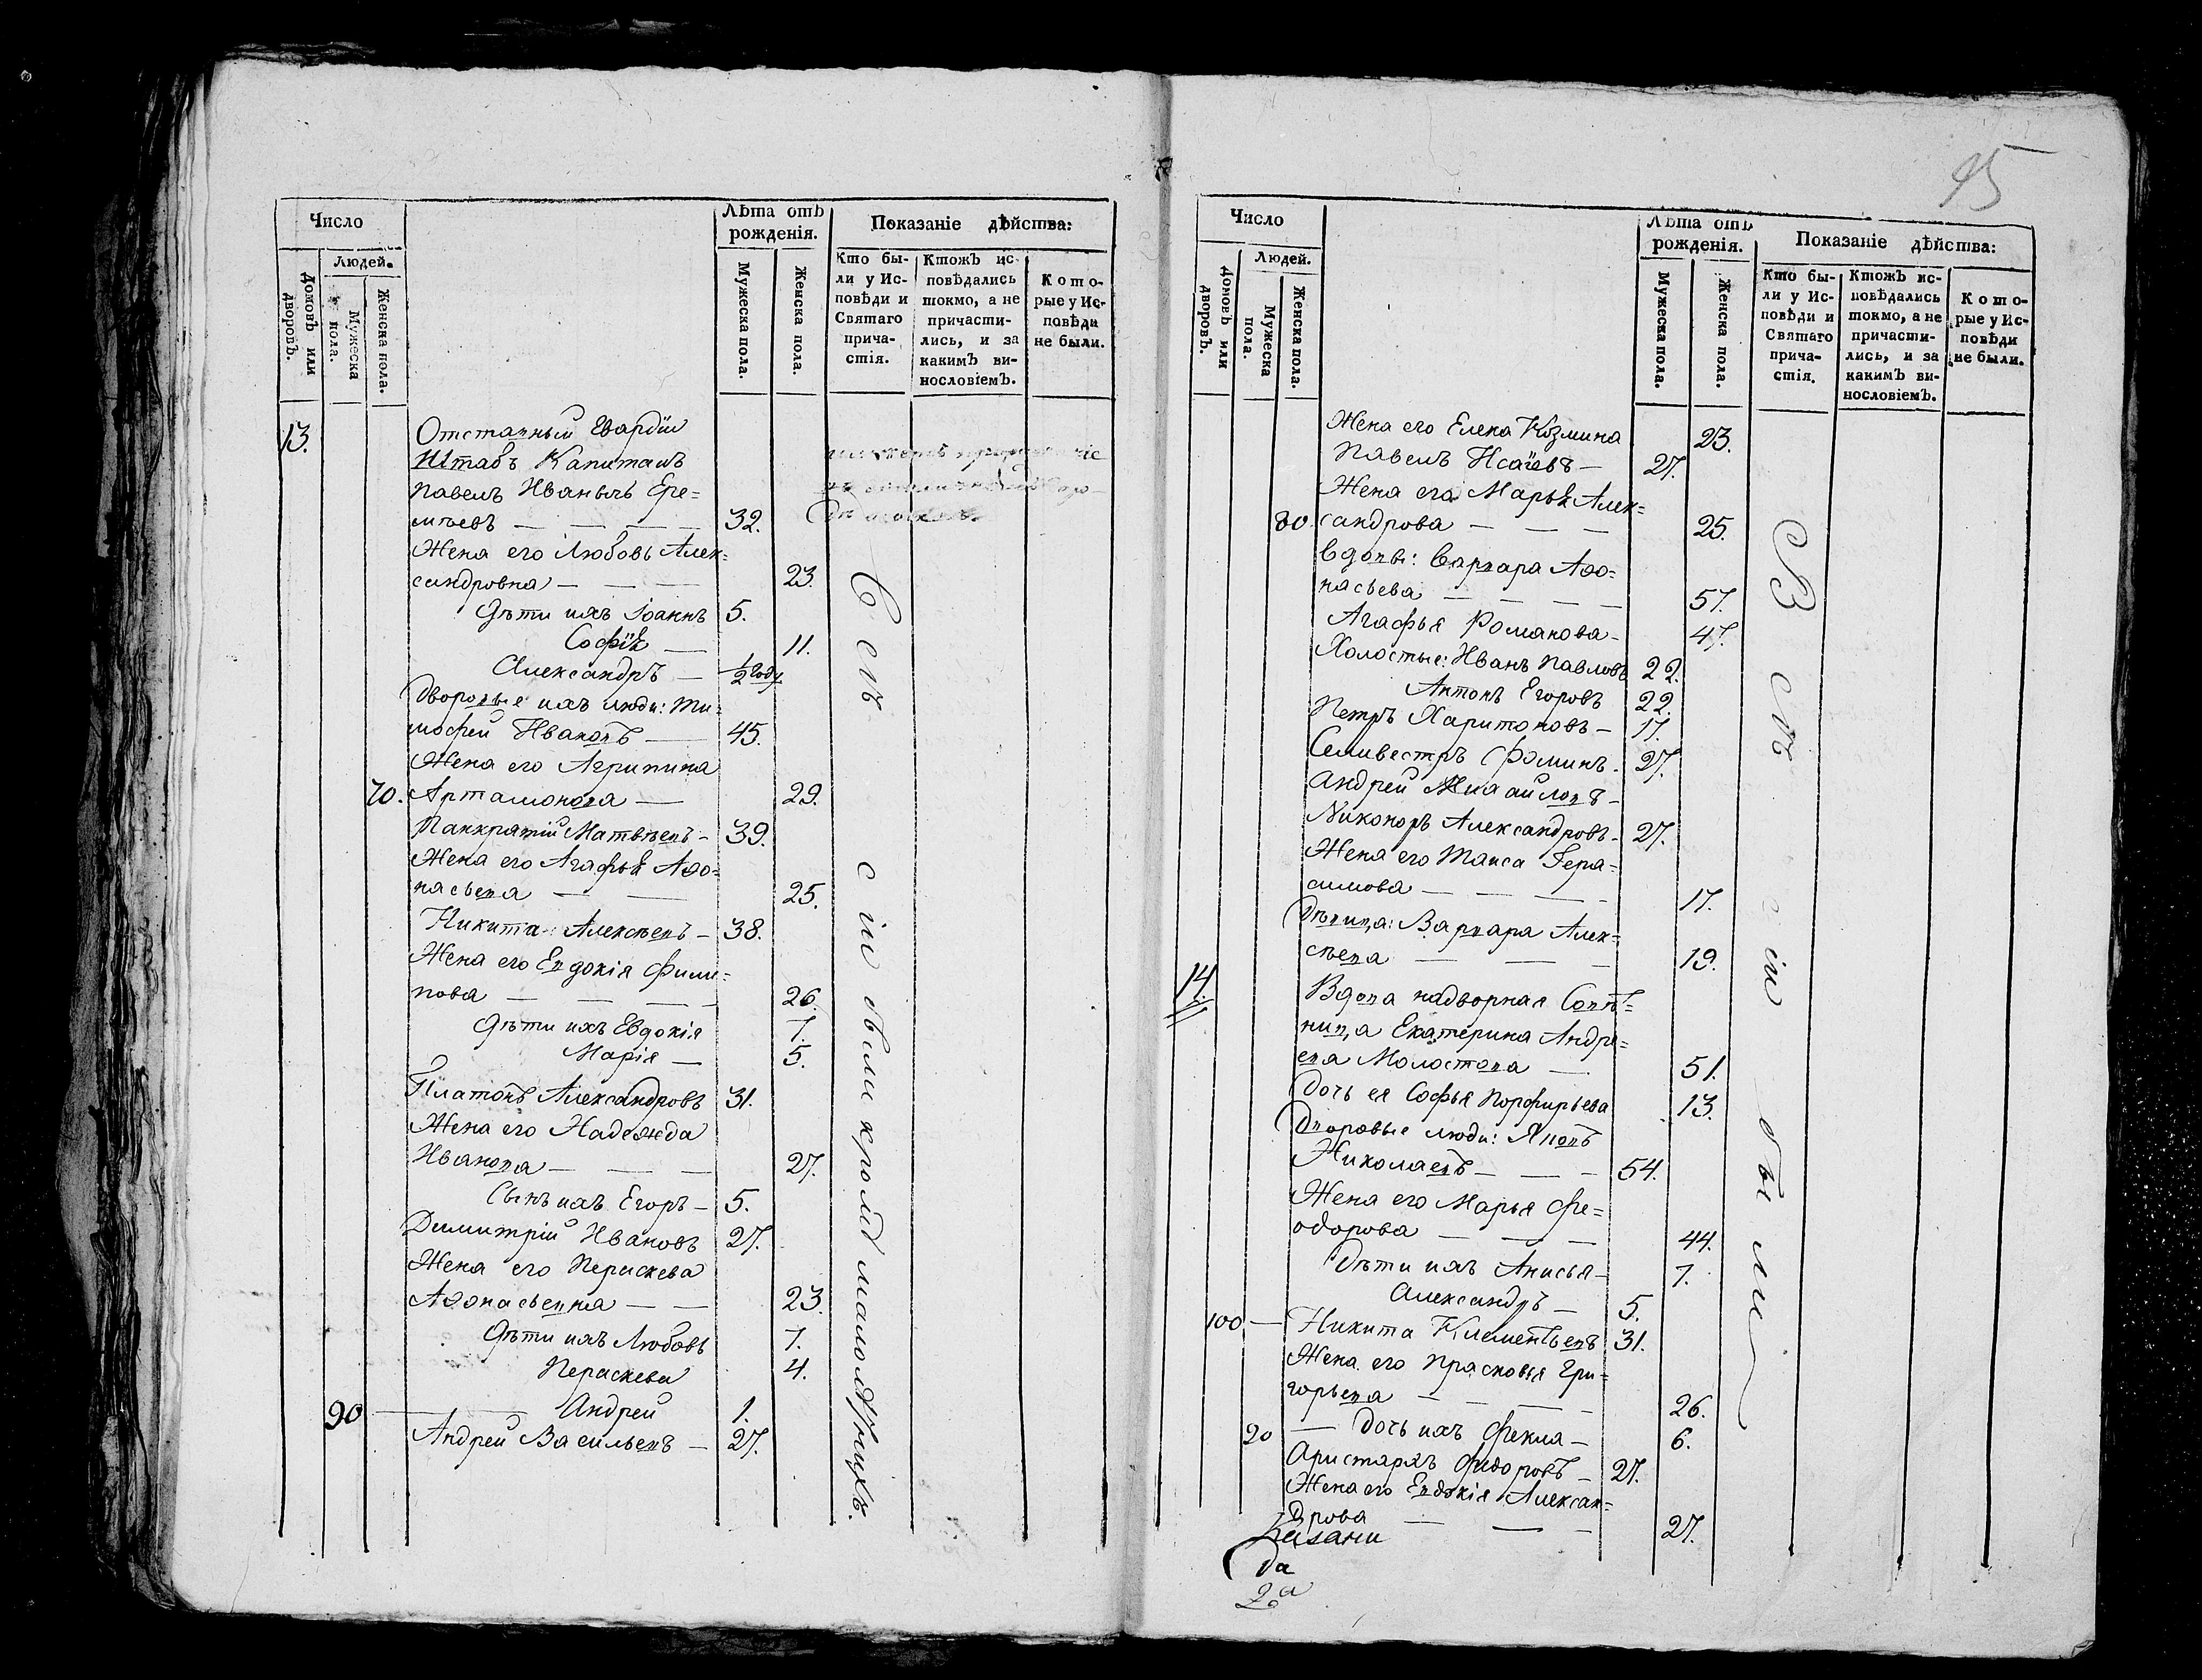 95
Число
Лѣта отъ
рожденія.
Показаніе дѣйства:
Людей.
Домовъ или
дворовъ.
Мужеска
пола.
Женска пола.
Мужеска пола.
Женска пола.
Кто бы-
ли у Ис-
повѣди и
Святаго
прича-
стія.
Ктожъ ис-
повѣдались
токмо, а не
причасти-
лись, и за
какимъ ви-
нословіемъ.
Кото-
рые у Ис-
повѣди
не были.
13.
Отставный Гвардіи
Штабъ Капитанъ
Павелъ Иванычь Ере=
мѣевъ — 32.
Жена его Любовь Алек=
сандровна — 23.
Дѣти ихъ Іоаннъ 5.
Софія — 11.
Александръ — 1/2 году
Дворовые ихъ люди: Ти=
мофей Ивановъ — 45.
Жена его Агрипина
70. Артамонова — 29.
Панкратій Матвѣевъ — 39.
Жена его Агафья Аѳо=
насьева — 25.
Никита Алексѣевъ — 38.
Жена его Евдокія Фили=
пова — 26.
Дѣти ихъ Евдокія 7.
Марія — 5.
Платонъ Александровъ 31.
Жена его Надежда
Иванова — 27.
Сынъ ихъ Егоръ — 5.
Димитрій Ивановъ 27.
Жена его Пераскева
Аѳонасьевна — 23.
Дѣти ихъ Любовь 7.
Пераскева 4.
90 — Андрей 1.
Андрей Васильевъ — 27.
Всѣ сіи были кромѣ малолѣтнихъ.
Число
Лѣта отъ
рожденія.
Показаніе дѣйства:
Людей.
Домовъ или
дворовъ.
Мужеска
пола.
Женска пола.
Мужеска пола.
Женска пола.
Кто бы-
ли у Ис-
повѣди и
Святаго
прича-
стія.
Ктожъ ис-
повѣдались
токмо, а не
причасти-
лись, и за
какимъ ви-
нословіемъ.
Кото-
рые у Ис-
повѣди
не были.
Жена его Елена Козмина 23.
Павелъ Исаіевъ — 27.
Жена его Марья Алек=
80 сандрова — 25.
Вдовы: Варвара Аѳо=
насьева — 57.
Агафья Романова — 47.
Холостые: Иванъ Павловъ 22.
Антонъ Егоровъ 22.
Петръ Харитоновъ — 17.
Селивестръ Фоминъ — 27.
Андрей Михайловъ —
Никоноръ Александровъ — 27.
Жена его Таиса Гера=
симова — 17.
Дѣвица: Варвара Алек=
сѣева — 19.
14. Вдова надворная Совѣт=
ница Екатерина Андре=
ева Молостова — 51.
Дочь ея Софья Порфирьева 13.
Дворовые люди: Яковъ
Николаевъ — 54.
Жена его Марья Фе=
одорова — 44.
Дѣти ихъ Анисья — 7.
Александръ — 5.
100 — Никита Клементьевъ 31.
Жена его Прасковья Гри=
горьева — 26.
90 — Дочь ихъ Фекла — 6.
Аристархъ Федоровъ — 27.
Жена его Евдокія Алексан=
дрова — 27.
Всѣ сіи были
Казани